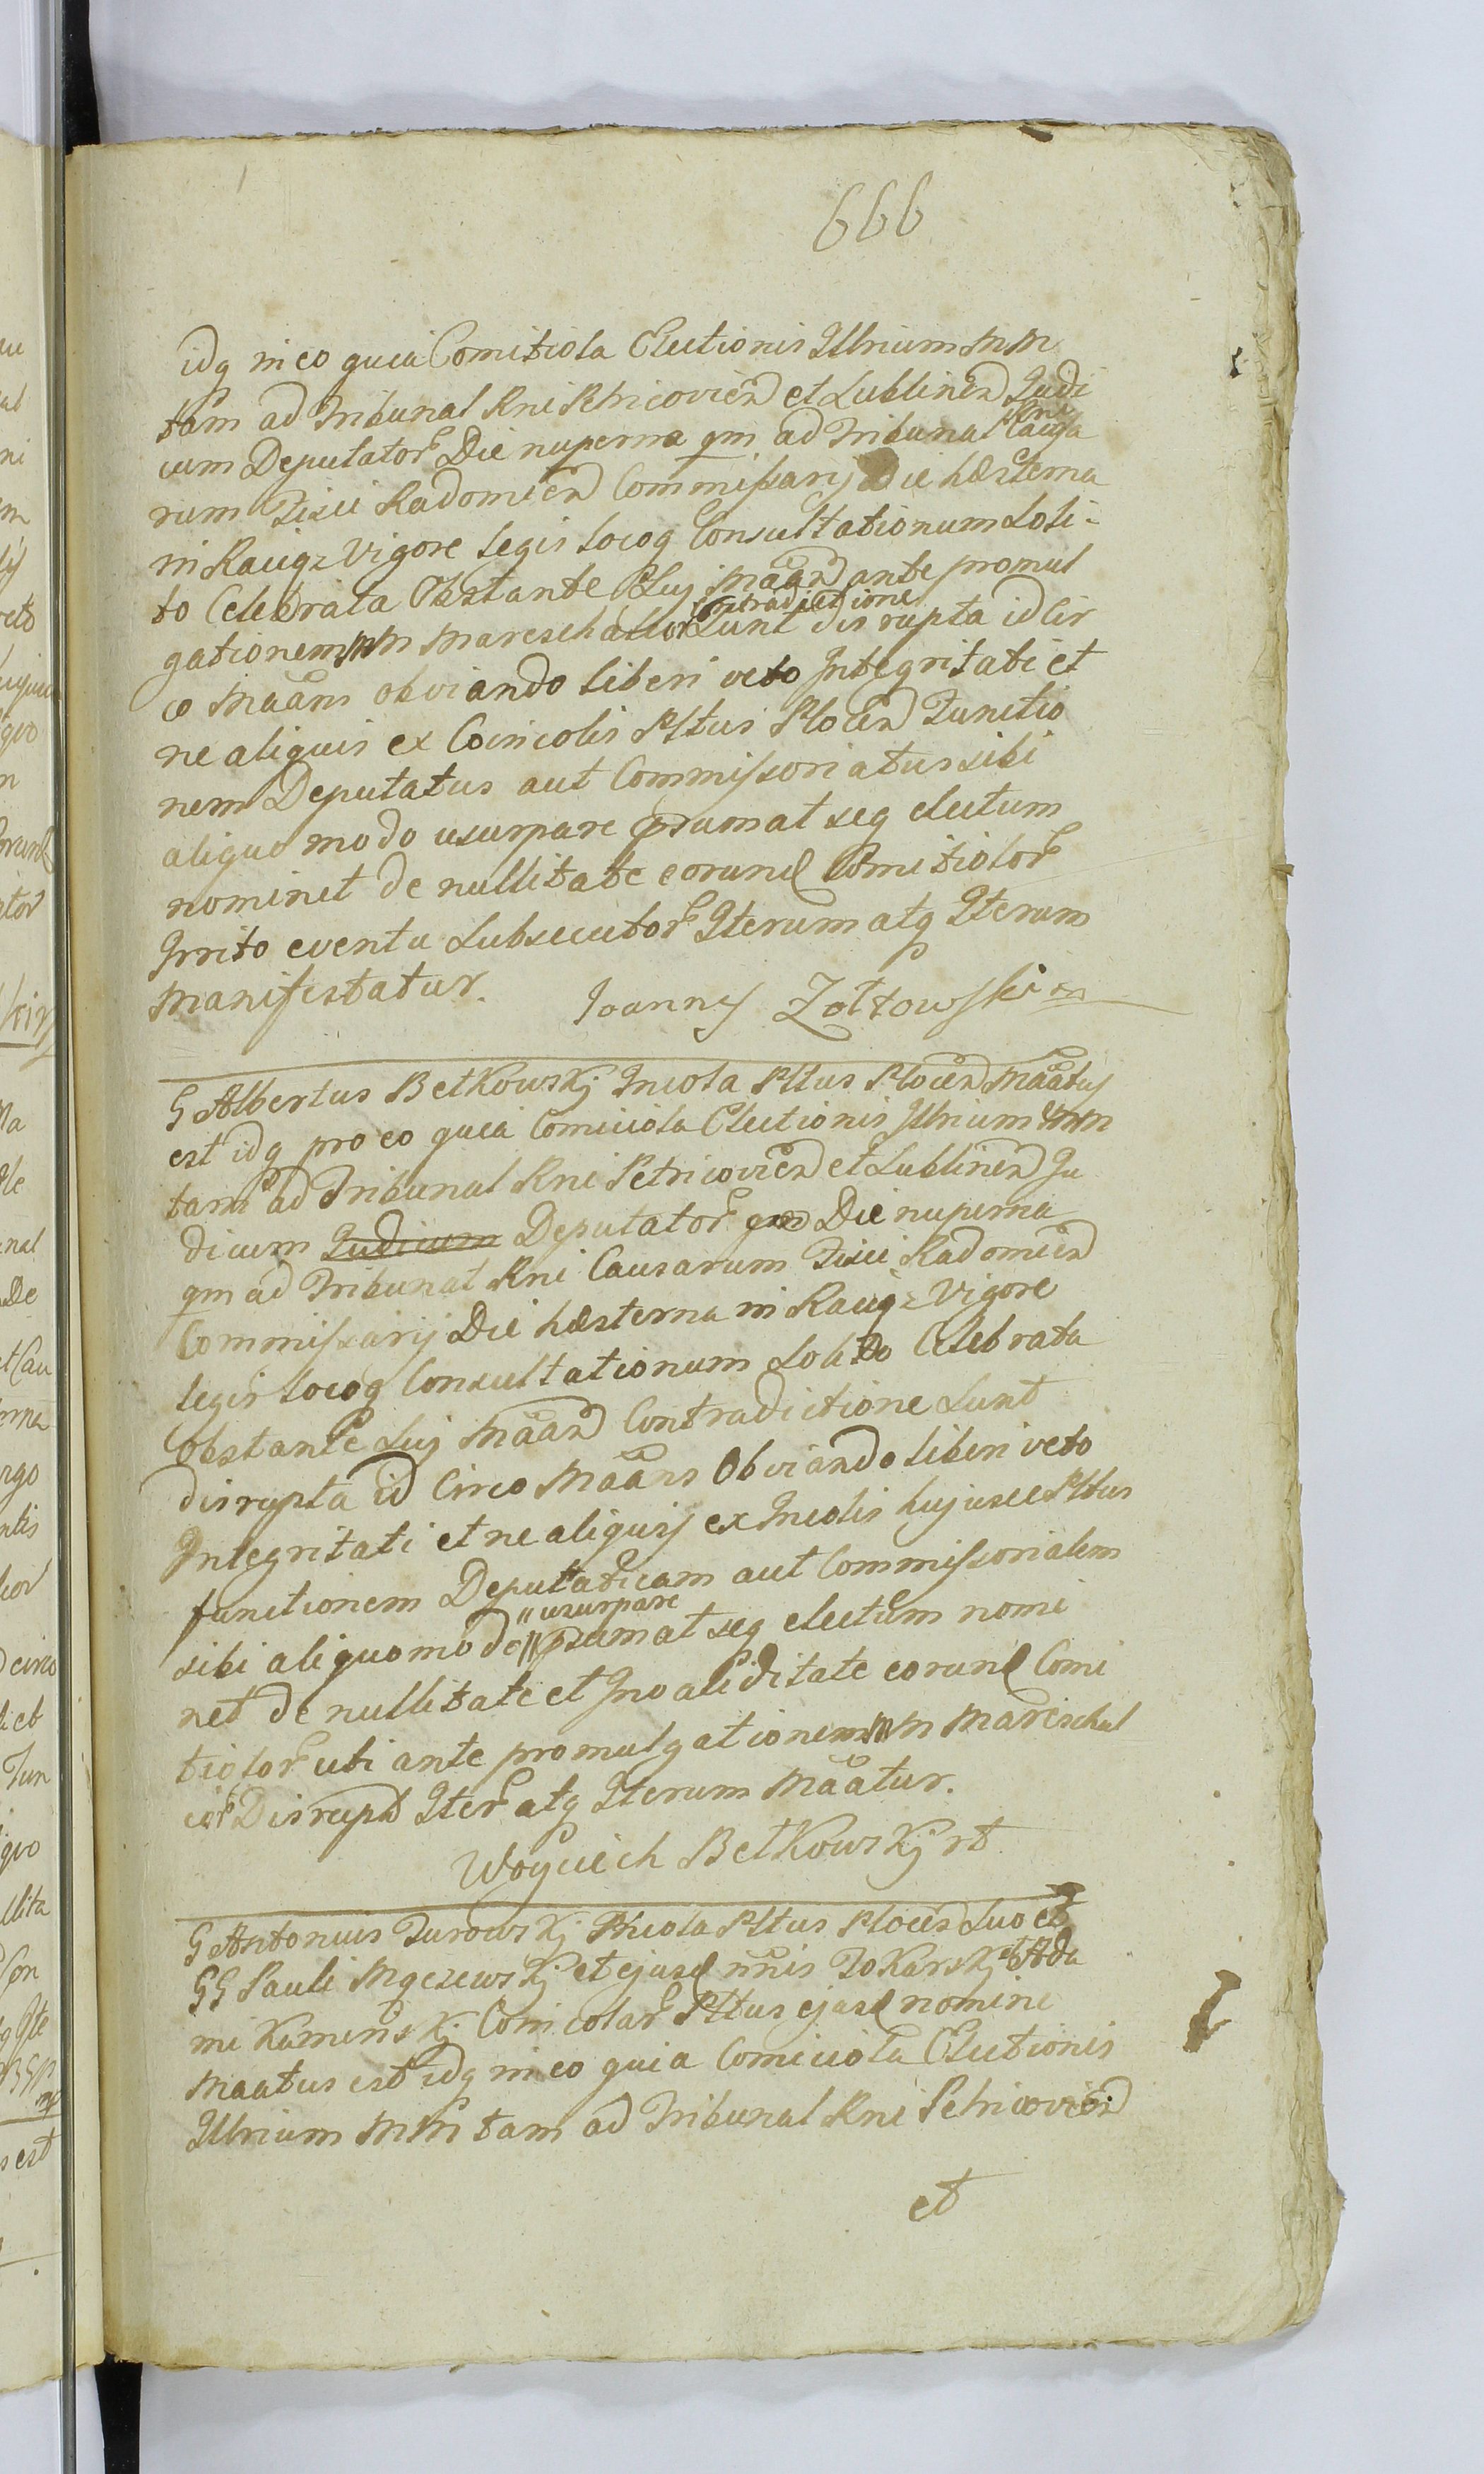 666
idq in eo quia Comitiola Electionis Illrium MM
tam ad Tribunal Rni Petricovien et Lublinen Judi
cum Deputator Die nuperna qm ad Tribunal Rni Causa
rum Fisci Radomien Commissarij Die hesterna
in Raciąz Vigore legis locoq Consultationum Soli-
to Celebrata Obstante Sui Maan contradictione ante promul
gationem M Mareschalcor Sunt disrupta id Cir
co Maans obviando liberi veto Integritati et
ne aliquis ex Coincolis Pltus Plocen Functio
nem Deputatus aut Commissoriatus sibi
aliquo modo usurpare psumat seq electum
nominet de nullitate eorund Comitiolor
Irrito eventu Subsecutor Iterum atq Iterum
Manifestatur.
Joannes Zołtowski
G Albertus Betkowskj Incola Pltus Plocen Maatus
est idq pro eo quia Comiciola Electionis Illrium MM
tam ad Tribunal Rni Petricovien et Lublinen Ju
dicum Judicum Deputator Die nuperna
qm ad Tribunal Rni Causarum Fisci Radomien
Commissarij Die hesterna in Raciąz Vigore
legis locoq Consultationum Solito Celebrata
Obstante Sui Maan Contradictione Sunt
disrupta id Circo Maans Obviando liberi veto
Integritati et ne aliquis ex Incolis hujusce Pltus
functionem Deputaticam aut Commissorialem
sibi aliquo modo usurpare psumat seq electum nomi
net de nullitate et Invaliditate eorund Comi
tiolor uti ante promulgationem M Mareschal
cor Disrupt Iter atq Iterum Maatur.
Woyciech Betkowskj
G Antonius Turowskj Incola Pltus Plocen Suo et
GG Pauli Mgezewskj et ejusd nnis Tokarskj et Ada
mi Kamenskj Coincolar Pltus ejusd nomine
Maatus est idq in eo quia Comiciola Electionis
Illrium MM tam ad Tribunal Rni Petricovien
et